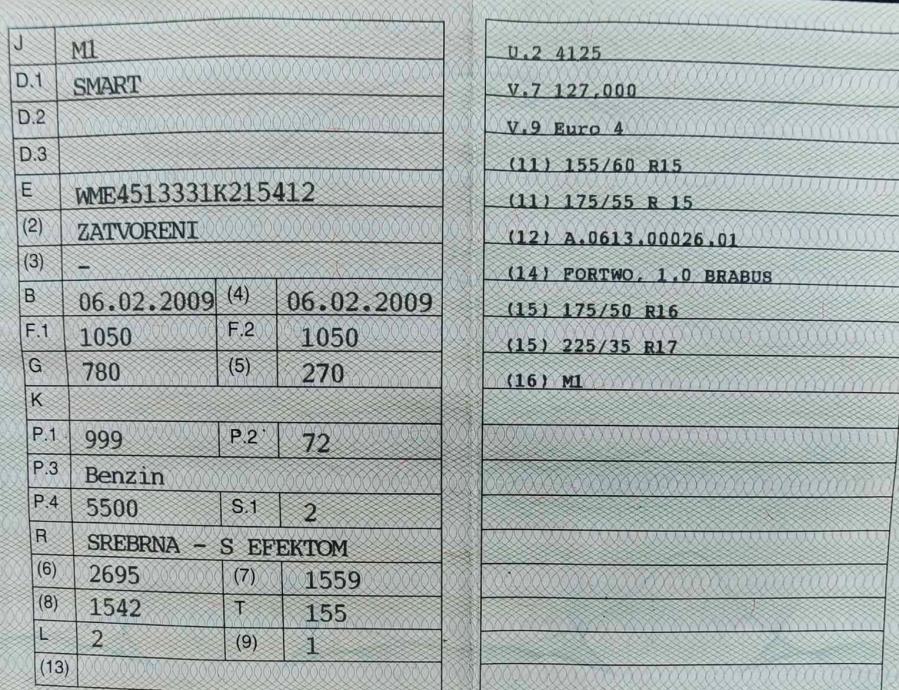 J M1
D.1 SMART
D.2
D.3
E WME4513331K215412
(2) ZATVORENI
(3) –
B 06.02.2009 (4) 06.02.2009
F.1 1050 F.2 1050
G 780 (5) 270
K
P.1 999 P.2 72
P.3 Benzin
P.4 5500 S.1 2
R SREBRNA - S EFEKTOM
(6) 2695 (7) 1559
(8) 1542 T 155
L 2 (9) 1
(13)
U.2 4125
V.7 127,000
V.9 Euro 4
(11) 155/60 R15
(11) 175/55 R 15
(12) A.0613.00026.01
(14) FORTWO, 1.0 BRABUS
(15) 175/50 R16
(15) 225/35 R17
(16) M1